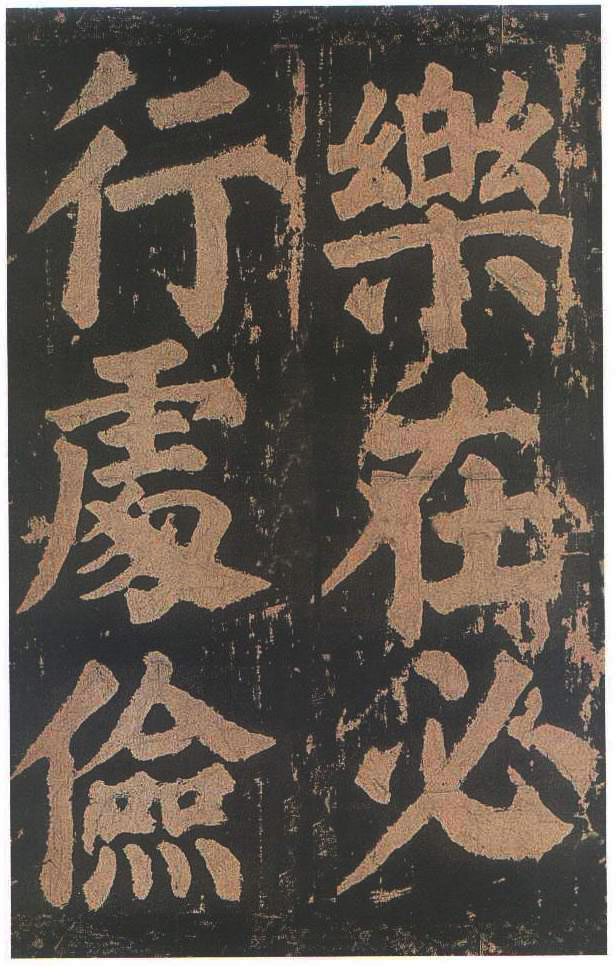 樂在必
行處儉